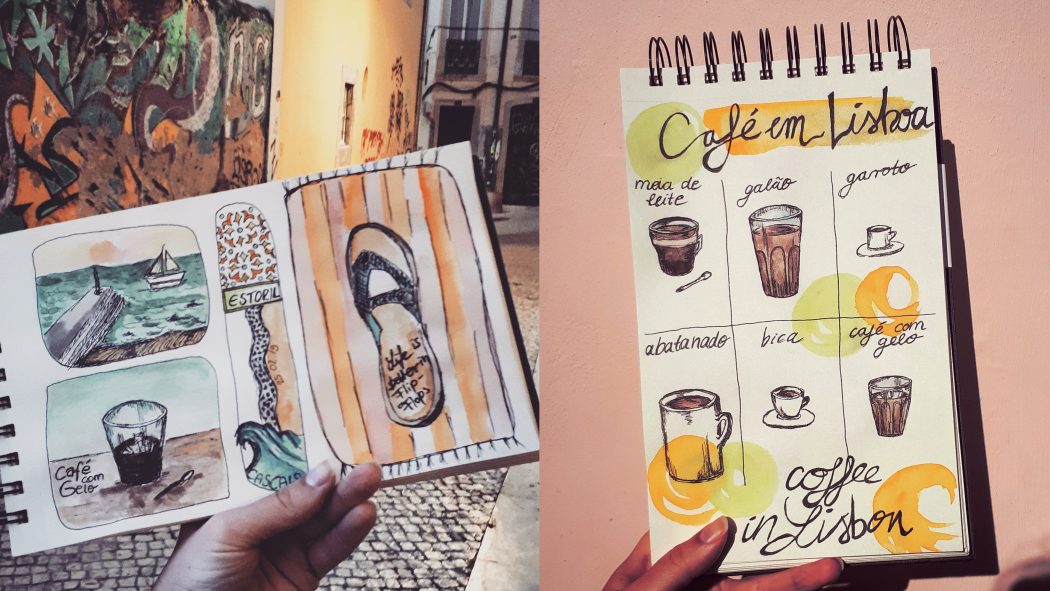 ESTORIL
Café
com
Gelo
Life is
better in
Flip-
Flops
CASCAIS
Café em Lisboa
meia de
leite
galão
garoto
abatanado
bica
café com
gelo
coffee
in Lisbon